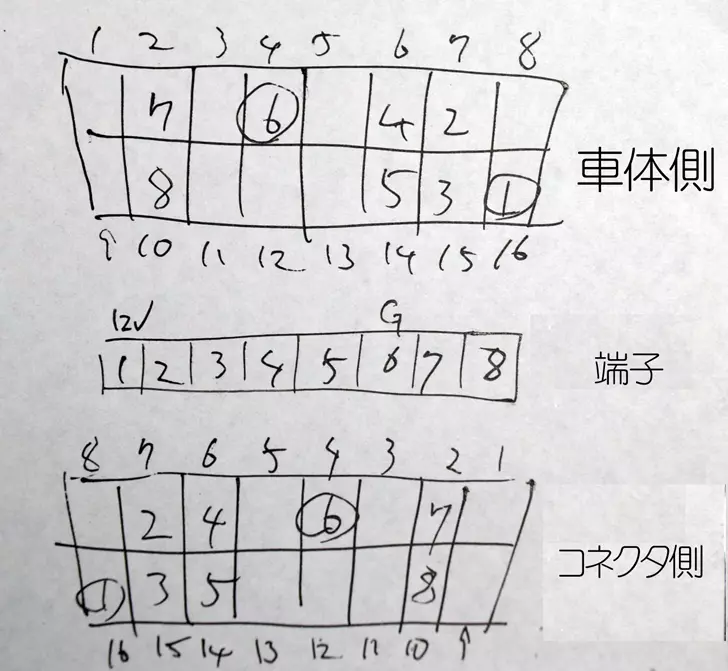 1 2 3 4 5 6 7 8
7 6 4 2
車体側
8 5 3 1
9 10 11 12 13 14 15 16
12V G
1 2 3 4 5 6 7 8
端子
8 7 6 5 4 3 2 1
2 4 6 7
コネクタ側
1 3 5 8
16 15 14 13 12 11 10 9